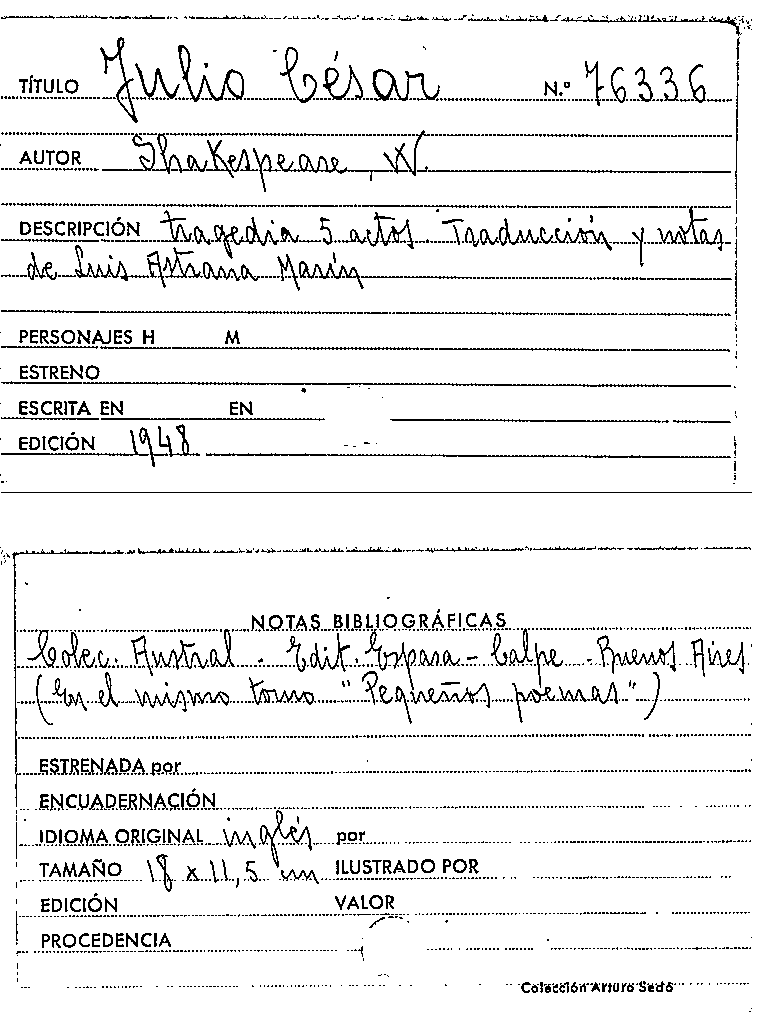 TÍTULO Julio César N.º 76336
AUTOR Shakespeare, W.
DESCRIPCIÓN tragedia 5 actos. Traducción y notas
de Luis Astrana Marín
PERSONAJES H M
ESTRENO
ESCRITA EN EN
EDICIÓN 1948
NOTAS BIBLIOGRÁFICAS
Colec. Austral - Edit. Espasa - Calpe - Buenos Aires
(En el mismo tomo "Pequeños poemas")
ESTRENADA por
ENCUADERNACIÓN
IDIOMA ORIGINAL inglés por
TAMAÑO 18 x 11,5 cm ILUSTRADO POR
EDICIÓN VALOR
PROCEDENCIA
Colección Arturo Sedó